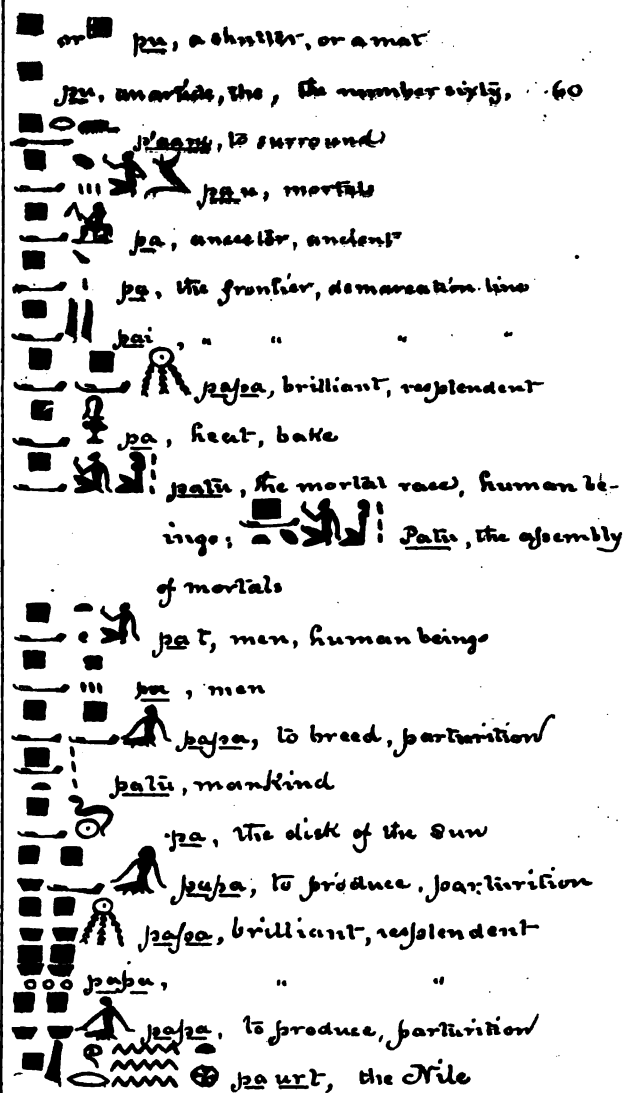 or pu, a shutter, or a mat
pu, an article, the, the number sixty, 60
to surround
pau, mortals
pa, ancestor, ancient
pa, the frontier, demarcation line
pai, " " " "
papa, brilliant, resplendent
pa, heat, bake
patu, the mortal race, human be-
ings; Patu, the assembly
of mortals
pat, men, human beings
men
papa, to breed, parturition
patu, mankind
pa, the disk of the Sun
papa, to produce, parturition
papa, brilliant, resplendent
papa, " "
papa, to produce, parturition
pa urt, the Nile